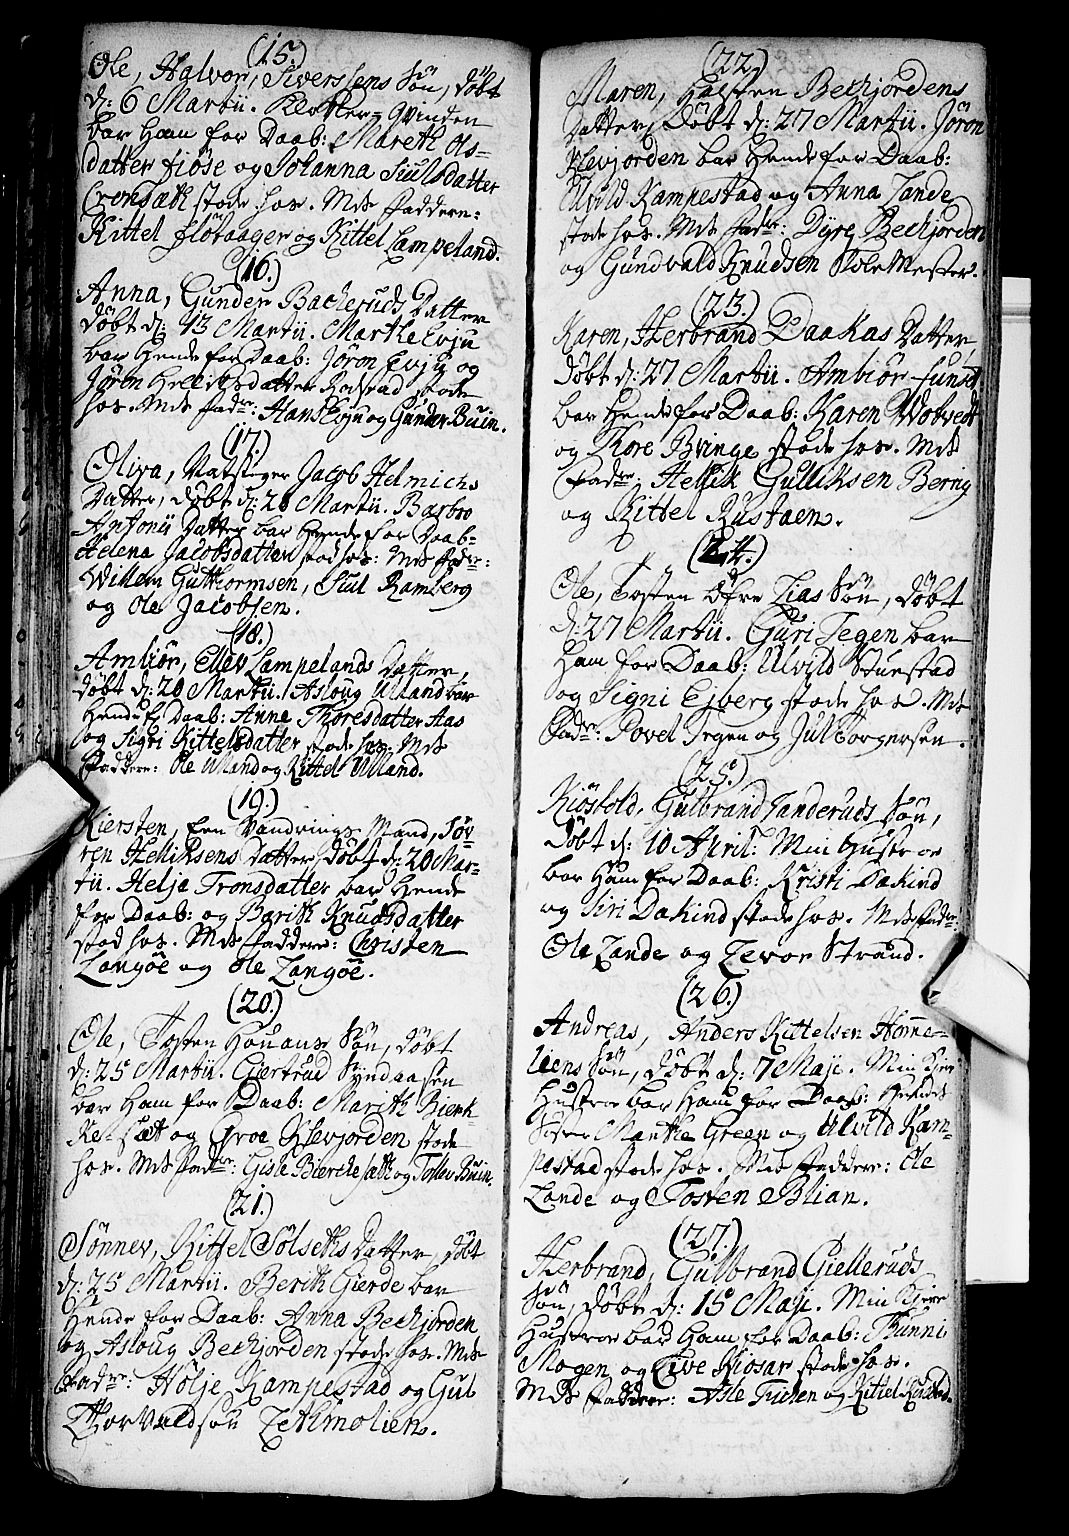 (15.)
Ole, Halvor, Siverssens Søn, døbt
d: 6 Martii. Klokker-Qvinden
bar Ham for Daab: Mareth Ols-
datter Fiøse og Johanna Juulsdatter
stode hos. Mds Faddere:
Kittel Flötaager og Kittel Lampeland.
(16.)
Anna, Gunder Bacheruds Datter
døbt d: 13 Martii. Marthe Evju
bar Hende for Daab: Jøron Evju og
Jøren Datter stode
hos. Mds Fadre: Hans Evju og Gunder Buin.
(17.)
Oliva, Jacob Helmichs
Datter, døbt d: 20 Martii. Barbro
Antonii Datter bar Hende for Daab-
Helena Jacobsdatter stod hos: Mds Fadre:
Willem Gutthormsen, Juul Ramberg
og Ole Jacobsen.
(18.)
Ambiør, Ellev Lampelands Datter,
døbt d: 20 Martii. Asloug Ulland bar
Hende f. Daab: Anne Thoresdatter Aas
og Sigri Kittelsdatter stode hos. Mds
Faddere: Ole Ulland og Kittel Ulland.
(19.)
Kiersten, een Vandrings Mand, Søv-
ren Hellïksens Datter, døbt d: 20 Mar-
tii. Helje Tronsdatter bar Hende
for Daab: og Barith Knudsdatter
stod hos. Mds Faddere: Christen
Langöe og Ole Langöe.
(20.)
Ole, Tosten Houans Søn, døbt
d: 25 Martii. Giertrud Syndaasen
bar Ham for Daab: Marith Bierk-
ke-sæt og Groe Klevjorden stode
hos. Mds Fadre: Gisle Bierckesæth og Tollev Buin.
(21.)
Sønnev, Kittel Sølseths Datter, døbt
d: 25 Martii. Berith Gierde bar
Hende for Daab: Anna Bechjorden
og Asloug Bechjorden stode hos. Mds
Fadre: Hölje Kampestad og Gul
Thorvaldsøn
(22.)
Maren, Halsten Bechjordens
Datter, Døbt d: 27 Martii. Jörøn
Klevjorden bar Hende for Daab:
Ulvild Kampestad og Anna Lande
stode hos. Mds Fadre: Dyre Bechjorden
og Gundvald Knudsen Skolemester.
(23.)
Karen, Herbrand Daakas Datter,
døbt d: 27 Martii. Ambiør
bar Hende for Daab: Karen
og Thore Bringe stode hos. Mds
Fadre: Hellik Gulliksen Bering
og Kittel Rustaen.
(24.)
Ole, Tosten Øfre Lias Søn, døbt
d: 27 Martii. Guri Tegen bar
Ham for Daab: Ulvild Stuestad
og Signi Ejberg stode hos. Mds
Fadre: Povel Tegen og Jul Torgersen.
(25.)
Kiöstold, Gulbrand Landeruds Søn,
Døbt d: 10 April: Min Hustroe
bar Ham for Daab: Kristi Dakind
og Siri Dakind stode hos. Mds Fadre:
Ole Lande og Levor Strand.
(26.)
Andreas, Anders Kittelsen Homme-
liens Søn, døbt d: 7 Maji. Min Kjere
Hustroe bar Ham for Daab:
Søster Marthe Green og Ulvild Kam-
pestad stode hos. Mds Faddere: Ole
Lande og Tosten Blian.
(27.)
Herbrand, Gulbrand Gielleruds
Søn, døbt d: 15 Maji. Min Kjere
Hustroe bar Ham for Daab: Thunni
Mogen og Live Kiosar stode hos.
Mds Faddere: Asle Tuchen og Kittel